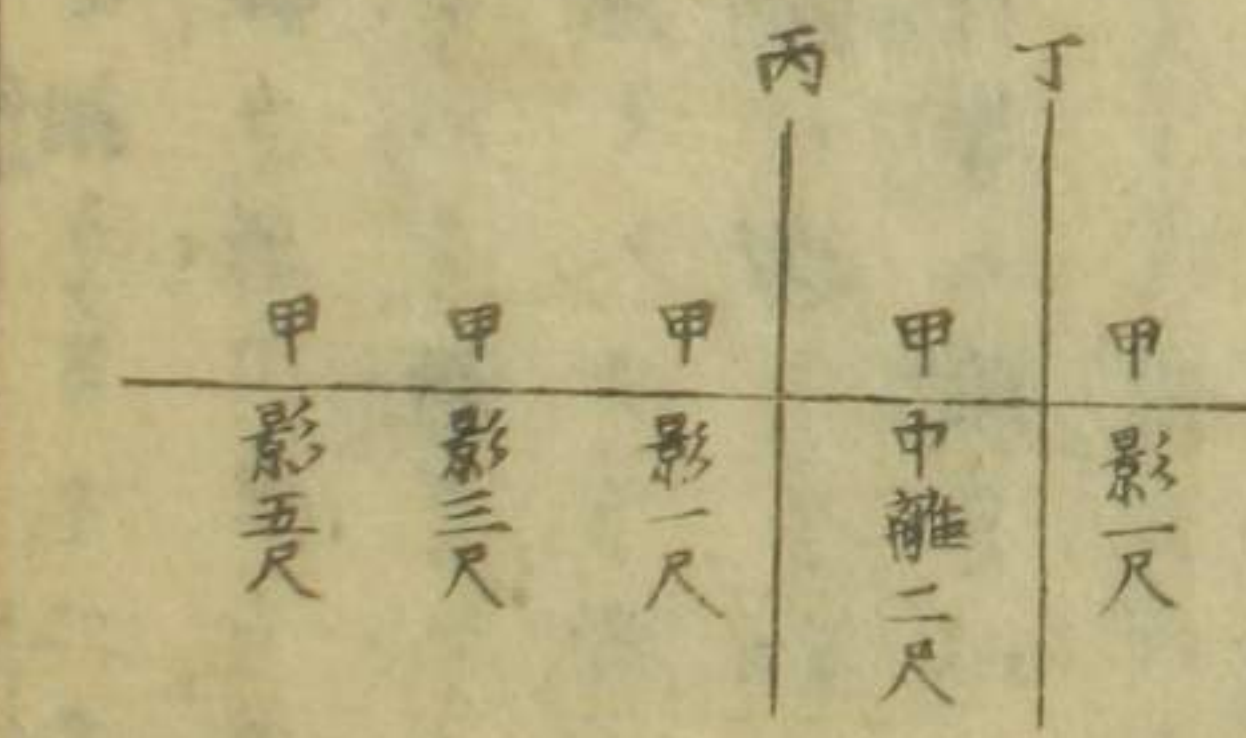 丁
丙
甲
影一尺
甲
中離二尺
甲
影一尺
甲
影三尺
甲
影五尺